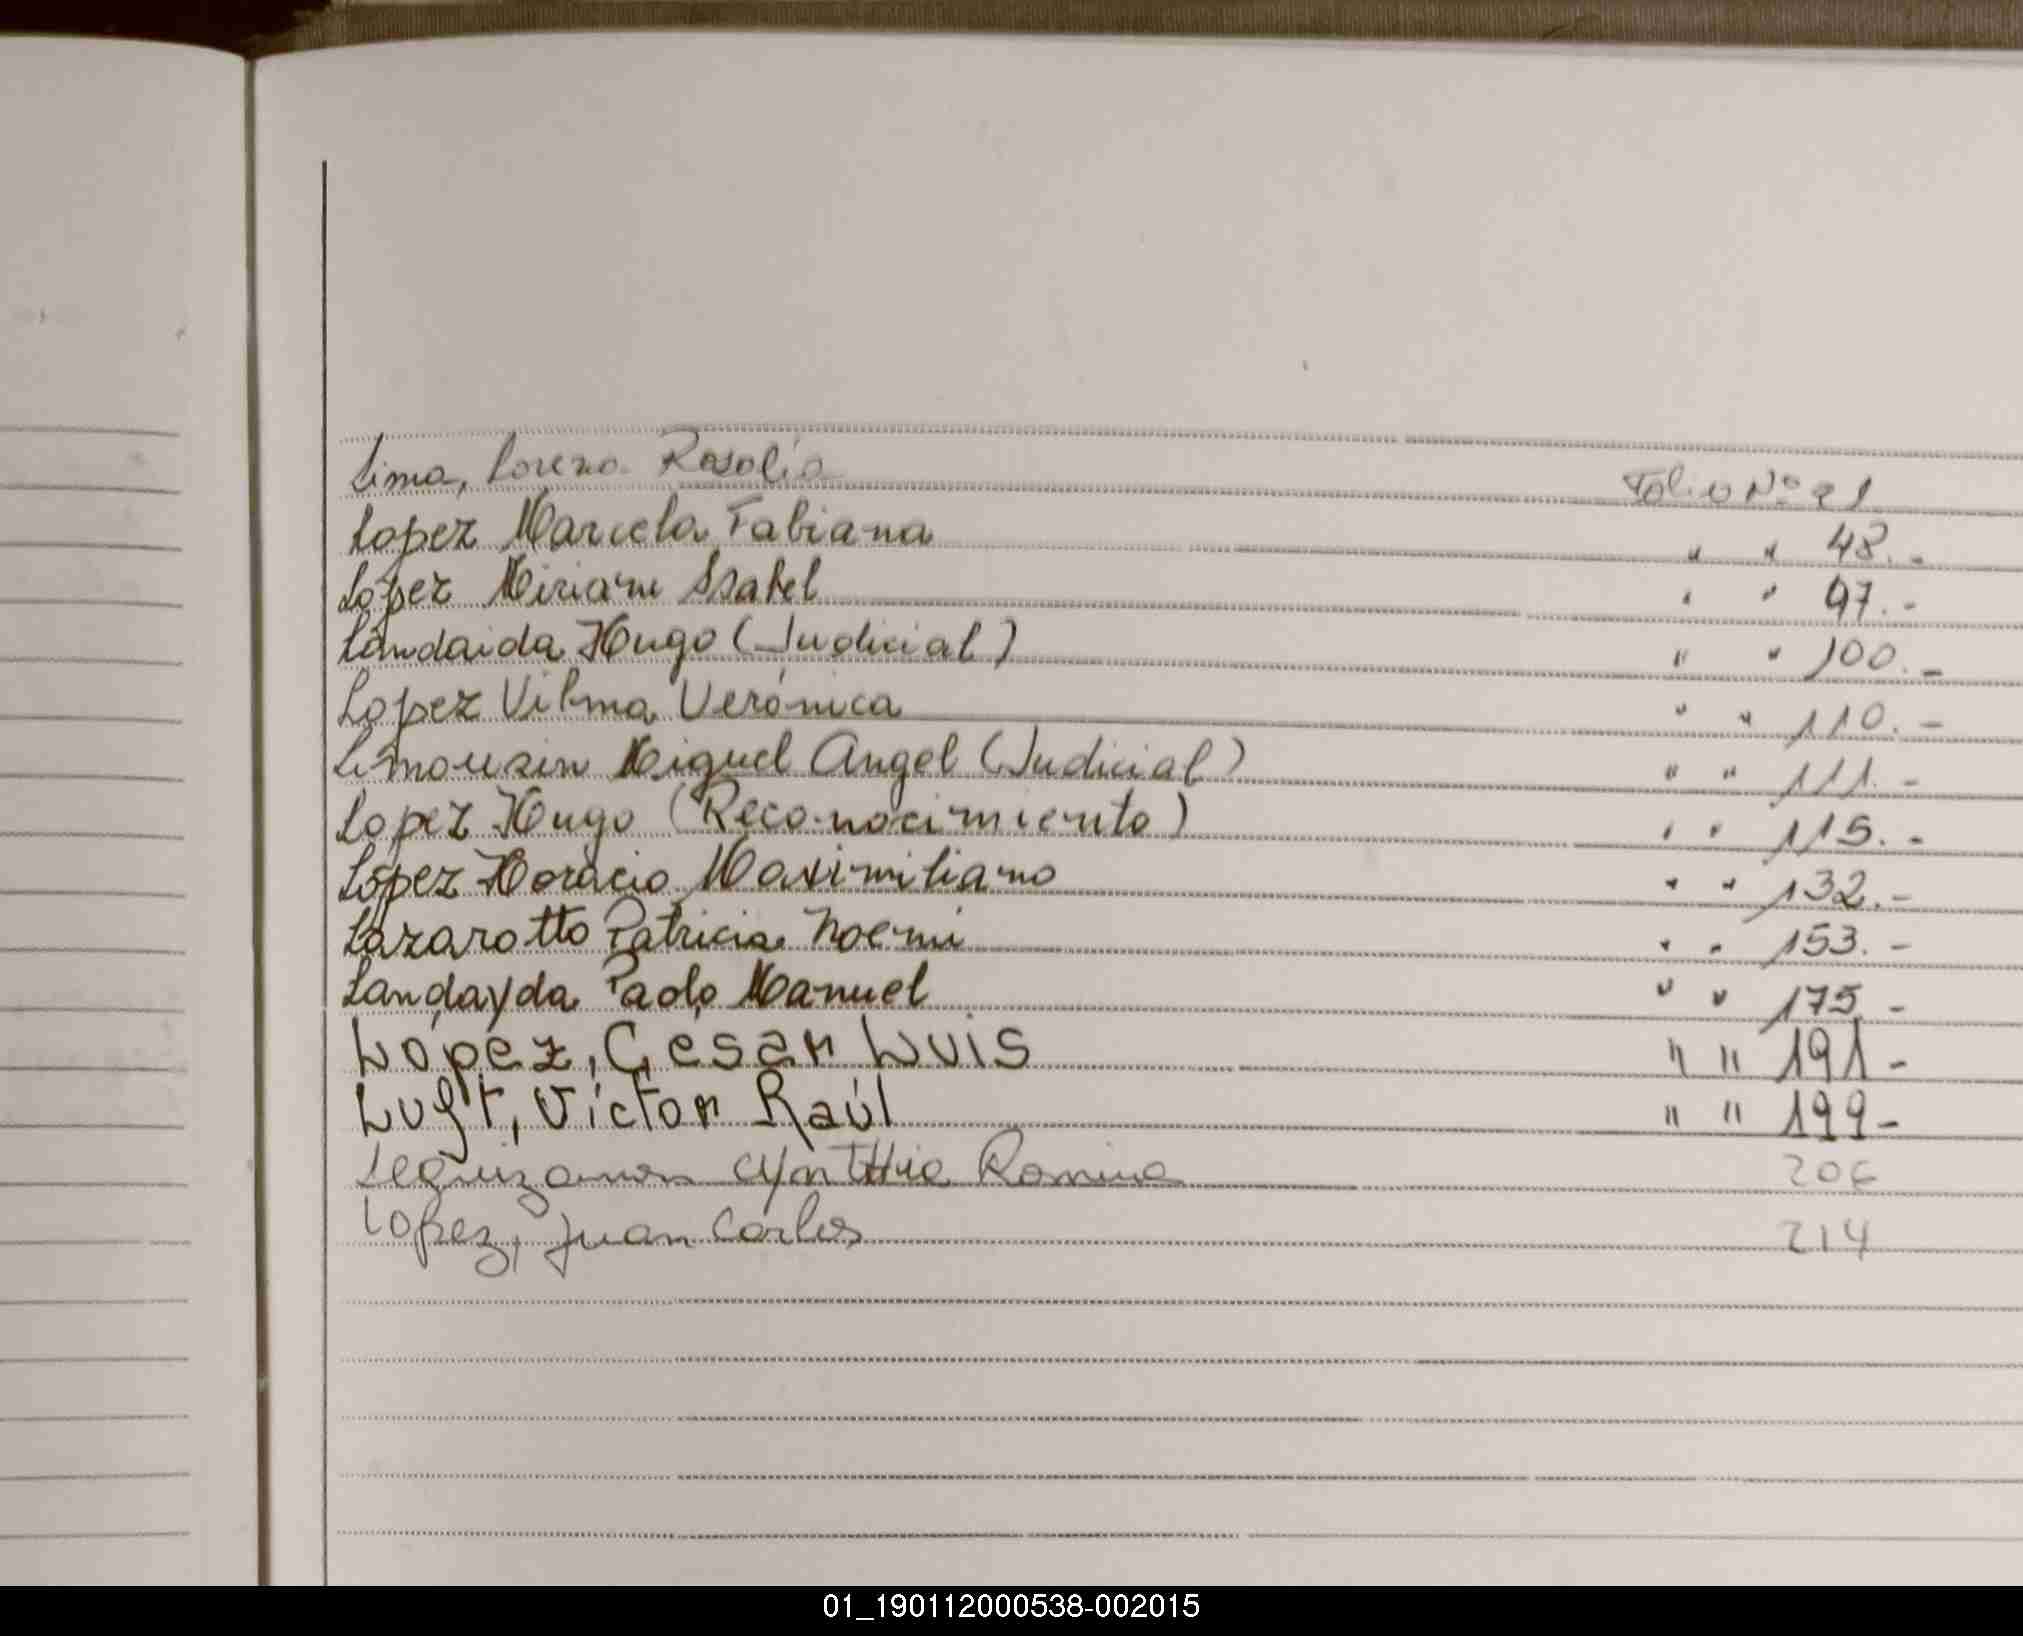 Lima, Lorena Rosalía Folio Nº 21
Lopez Marcela Fabiana " " 48.-
López Miriam Isabel " " 97.-
Landaida Hugo (Judicial) " " 100.-
Lopez Vilma Verónica " " 110.-
Limousin Miguel Angel (Judicial) " " 111.-
Lopez Hugo (Reconocimiento) " " 115.-
López Horacio Maximiliano " " 132.-
Lazarotto Patricia Noemi " " 153.-
Landayda Paolo Manuel " " 175.-
López, César Luis " " 191-
Luft, Víctor Raúl " " 199-
Leguizamon Cynthia Romina 206
Lopez, Juan Carlos 214
01_190112000538-002015